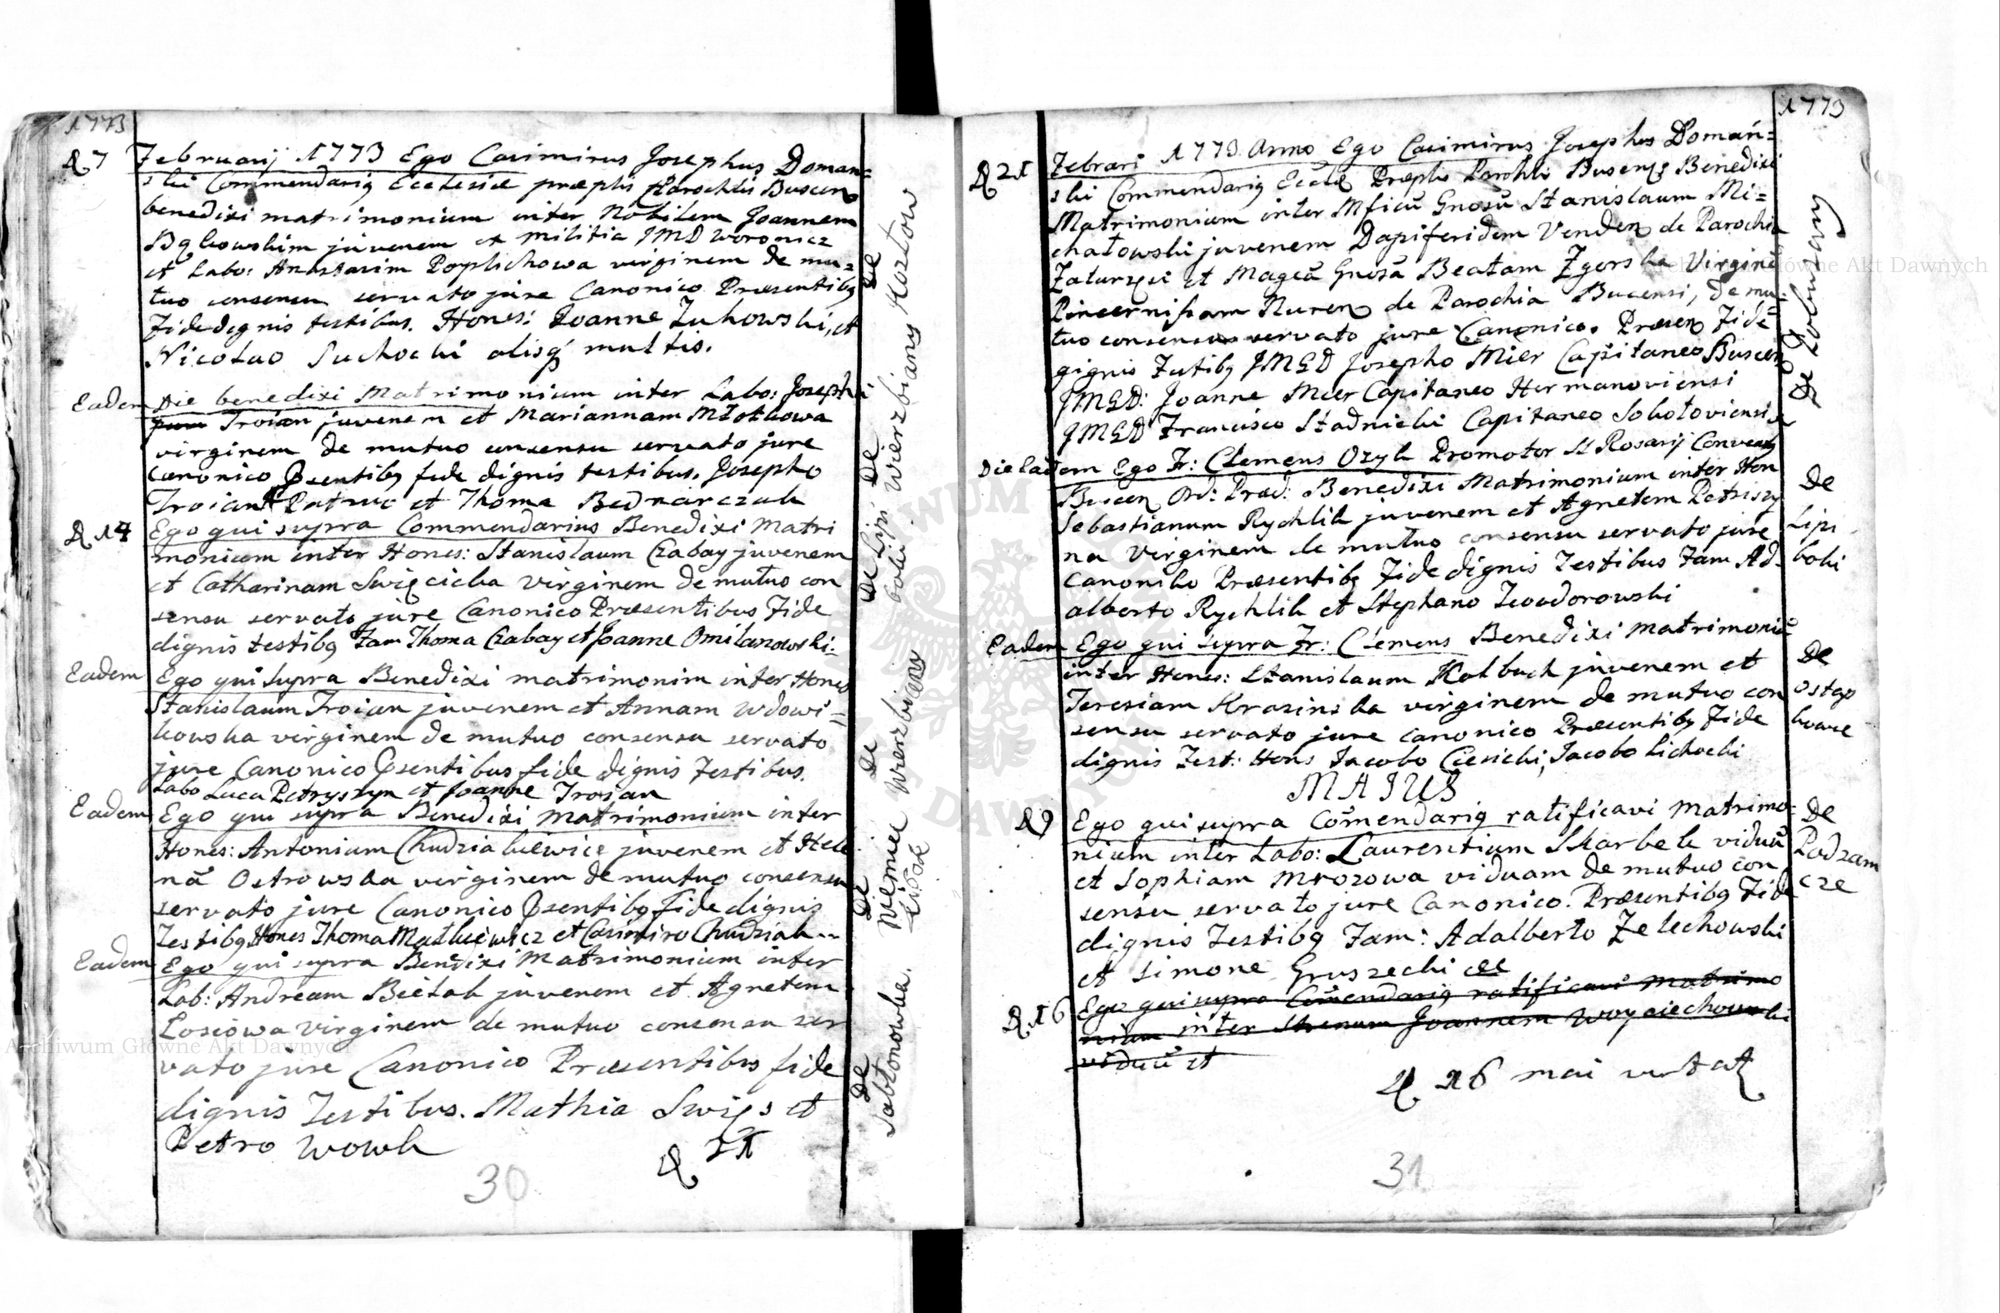 1773
D 7 Februarij 1773 Ego Casimirus Josephus Doman=
ski Commendariq Eclesiæ præpls Parochlis Buscen
benedixi matrimonium inter Nobilem Joannem
juvenem et militia JMD Woronicz
et Labo: Anastasim virginem de mu=
tuo consensu servato jure Canonico Præsentibq
Fide dignis testibus. Hones: Joanne Zukowski, et
Nicolao Suchocki alisq multis.
Eadem Die benedixi Matrimonium inter Labo: Josephu
Troian juvenem et Mariannam Mlotkowa
virginem de mutuo consensu servato jure
canonico Psentibq fide dignis testibus. Josepho
Troian Patruo et Thoma Bednarczuk
D 14 Ego qui supra Commendarius Benedixi Matri
monium inter Hones: Stanislaum Czabay juvenem
et Catharinam Swięcicka virginem de mutuo con
sensu servato jure Canonico Præsentibus Fide
dignis testibq Fam Thoma Czabay et Joanne Omilanowski.
Eadem Ego qui supra Benedixi matrimonim inter Hones
Stanislaum Troian juvenem et Annam Wdowi=
kowska virginem de mutuo consensu servato
jure Canonico Psentibus fide dignis Testibus.
Labo Luca Petryszyn et Joanne Troian
Eadem Ego qui supra Benedixi Matrimonium inter
Hones: Antonium Chudziakiewicz juvenem et Hele
nã Ostrowska virginem de mutuo consensu
servato jure Canonico Psentibq Fide dignis
Testibq Hones Thoma Matkiewicz et Casimiro Chudziak
Eadem Ego qui supra Benedixi Matrimonium inter
Lab: Andream Bielak juvenem et Agnetem
Łosiowa Virginem de mutuo consensu ser
vato jure Canonico Præsentibus fide
dignis Testibus. Mathia Swięs et
Petro Wowk
D 21
30
De Wierzbiany Kozłow
De Lipi boki.
De Wierzbiany
De Niemiec
De Sabłonowka.
1773
D 21 Febrari 1773 Anno Ego Casimirus Josephus Domań=
ski Commendariq Eccle Præpls Parohls Busens Benedixi
Matrimonium inter Mficũ Gnosũ Stanislaum Mi=
chałowski juvenem Dapiferidem Venden de Parochia
et Magcã Gnosã Beatam Zgorska Virginē
Pincernissam Nuren de Parochia Bucensi, de mu=
tuo consensu servato jure Canonico. Præsen Fide
gignis Testibq JMGD Josepho Mier Capitaneo Buscen
JMGD: Joanne Mier Capitaneo Hermanoviensi
JMGD Francisco Stadnicki Capitaneo
De Lobuzany
Die Eadem Ego Fr: Clemens Ozyk Promotor SS Rosarij Conventq
Buscen Ord: Præd: Benedixi Matrimonium inter Hon
Sebastianum Rychlik juvenem et Agnetem Petriszy
na Virginem de mutuo consensu servato jure
Canoniko Præsentibq Fide dignis Testibus Fam Ad=
alberto Rychlik et Stephano Teodorowski
De
Lipi
boki
Eadem Ego qui supra Fr: Clemens Benedixi matrimoniũ
inter Hones: Stanislaum Kolbuch juvenem et
Teresiam Krasinska virginem de mutuo con
sensu servato jure canonico Præsentibq Fide
dignis Test: Hons Jacobo Ciesicki, Jacobo Lichocki
De
ostap
kowce
MAIUS
D 9 Ego qui supra Comendariq ratificavi matrimo=
nium inter Labo: Laurentium Skarbek viduũ
et Sophiam Mrozowa viduam de mutuo con
sensu servato jure Canonico. Præsentibq Fide
dignis Testibq Fam: Adalberto Zelechowski
et Simone Gruszecki
De
Podzam
cze
D. 16 Ego qui supra Comendariq ratificavi Matrimo
nium inter Joannem Woyciechowski
viduũ et
D 16 mai
31
Archiwum Główne Akt Dawnych
Archiwum Główne Akt Dawnych